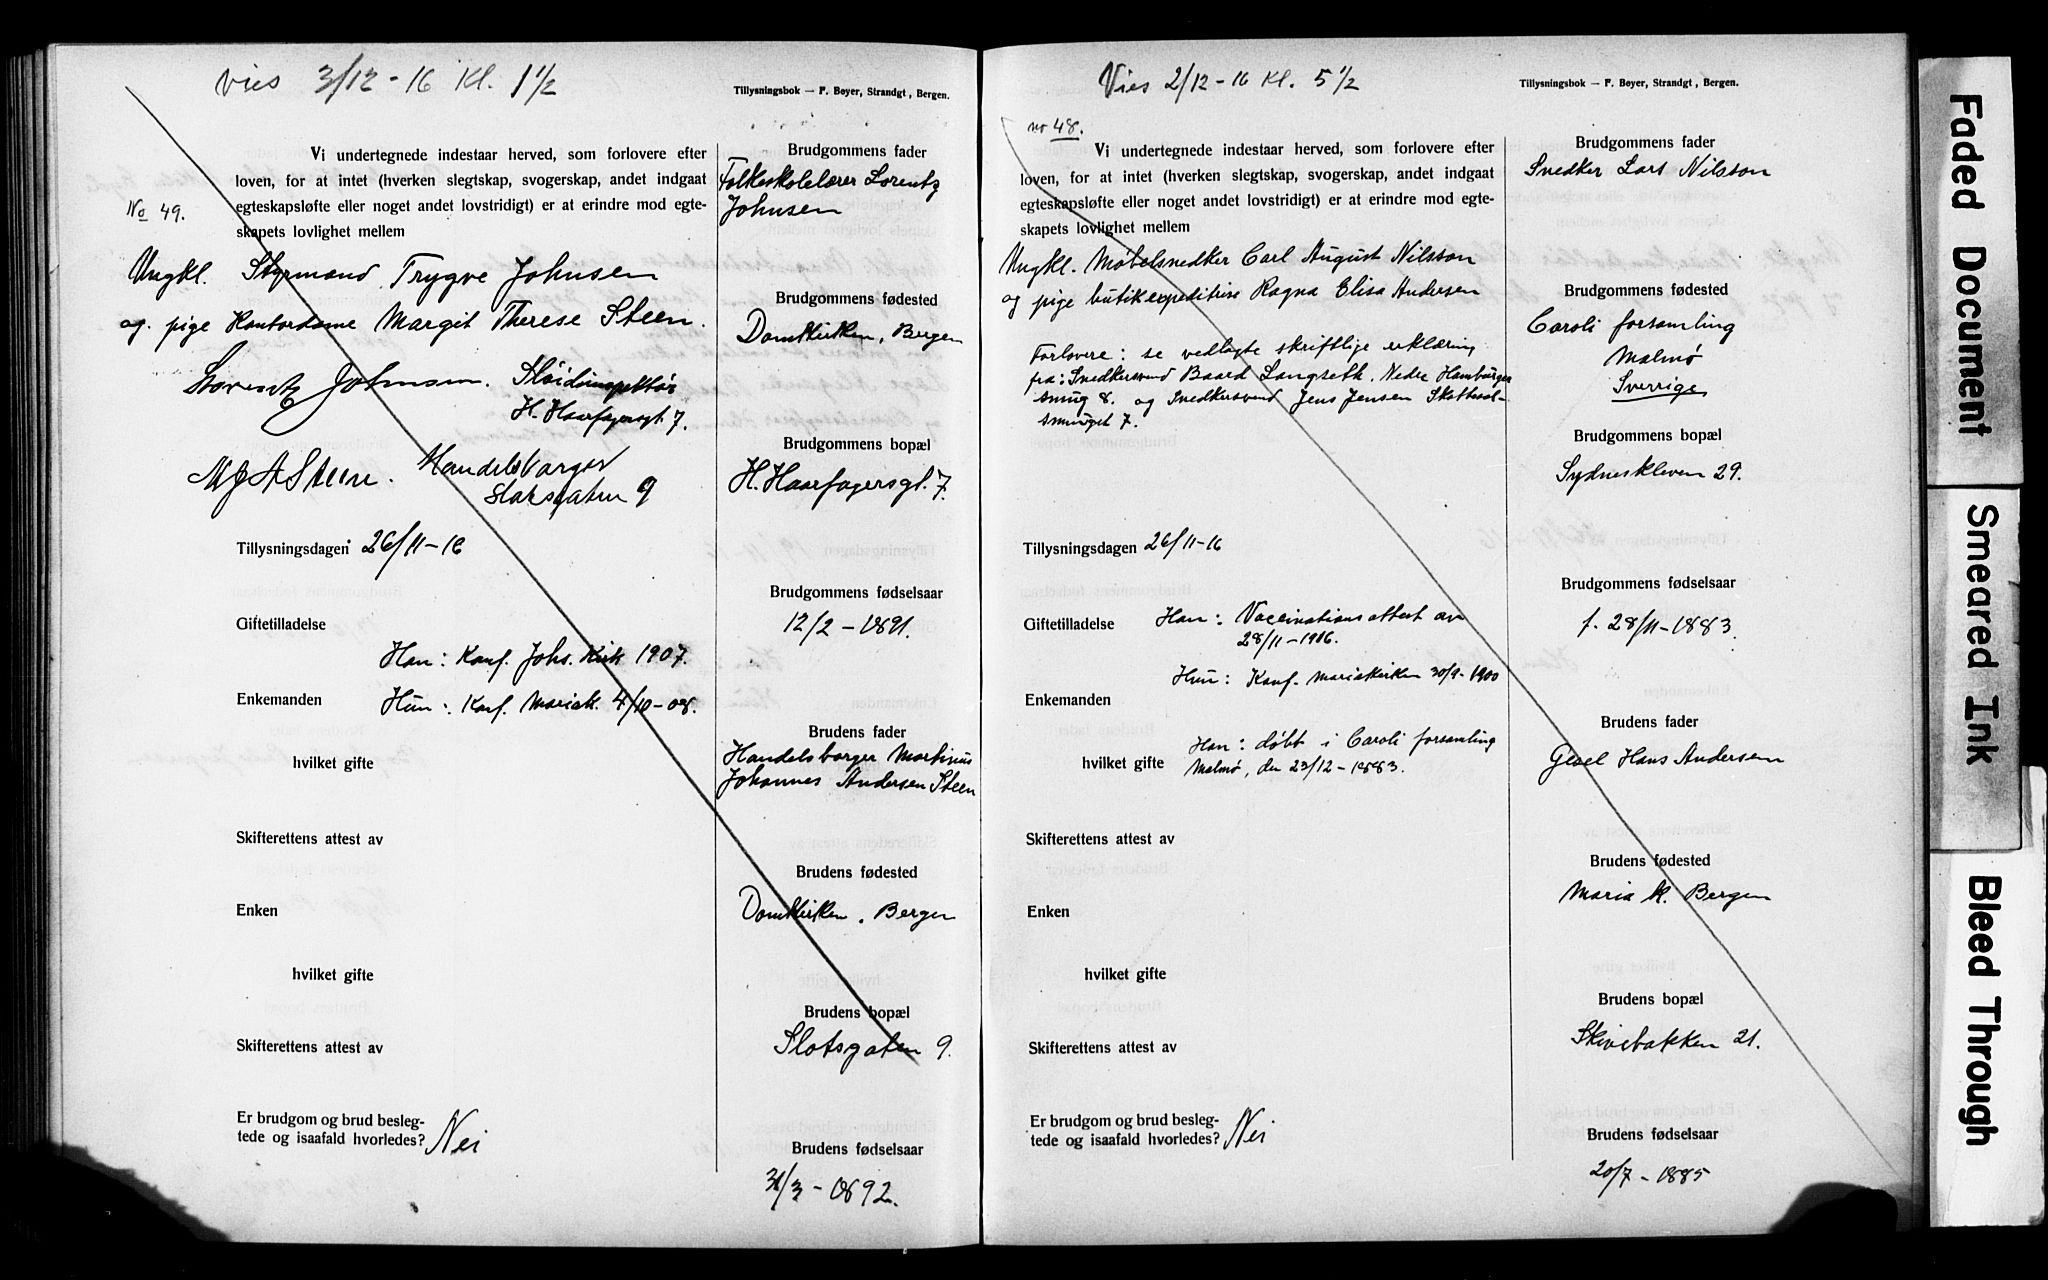 Vies 3/12-16 Kl. 1 1/2
Tillysningsbok — F. Beyer, Strandgt, Bergen.
Vi undertegnede indestaar herved, som forlovere efter
loven, for at intet (hverken slegtskap, svogerskap, andet indgaat
egteskapsløfte eller noget andet lovstridigt) er at erindre mod egte-
skapets lovlighet mellem
No 49.
Ungkl. Styrmand Trygve Johnsen
og pige Kontordame Margit Therese Steen.
Lorentz Johnsen. Sløidinspektør
H. Haarfagersgt. 7.
M J A Steen. Handelsborger
Slotsgaten 9
Tillysningsdagen 26/11-16
Giftetilladelse
Han: Konf. Johs. Kirk 1907.
Enkemanden Hun: Konf. Mariak. 4/10-08.
hvilket gifte
Skifterettens attest av
Enken
hvilket gifte
Skifterettens attest av
Er brudgom og brud besleg-
tede og isaafald hvorledes? Nei
Brudgommens fader
Folkeskolelærer Lorentz
Johnsen
Brudgommens fødested
Domkirken, Bergen
Brudgommens bopæl
H. Haarfagersgt. 7.
Brudgommens fødselsaar
12/2 - 1891.
Brudens fader
Handelsborger Martinius
Johannes Andersen Steen
Brudens fødested
Domkirken, Bergen
Brudens bopæl
Slotsgaten 9.
Brudens fødselsaar
31/3 - 1892.
Vies 2/12-16 Kl. 5 1/2
Tillysningsbok — F. Beyer, Strandgt, Bergen.
no 48.
Vi undertegnede indestaar herved, som forlovere efter
loven, for at intet (hverken slegtskap, svogerskap, andet indgaat
egteskapsløfte eller noget andet lovstridigt) er at erindre mod egte-
skapets lovlighet mellem
Ungkl. Møbelsnedker Carl August Nilsson
og pige butikexpeditrise Ragna Elisa Andersen
Forlovere: se vedlagte skriftlige erklæring
fra: Snedkersvend Baard Langseth, Nedre Hamburger
smug 8. og Snedkersvend Jens Jensen Skottesal-
smuget 7.
Tillysningsdagen 26/11-16
Giftetilladelse Han: Vaccinationsattest av
28/11-1916.
Hun: Konf. Mariakirken 30/9-1900
Enkemanden
Han: døbt i Caroli forsamling
hvilket gifte Malmø, den 23/12-1883.
Skifterettens attest av
Enken
hvilket gifte
Skifterettens attest av
Er brudgom og brud besleg-
tede og isaafald hvorledes? Nei
Brudgommens fader
Snedker Lars Nilsson
Brudgommens fødested
Caroli forsamling
Malmø
Sverrige
Brudgommens bopæl
Sydneskleven 29.
Brudgommens fødselsaar
f. 28/11-1883.
Brudens fader
Hans Andersen
Brudens fødested
Maria k. Bergen
Brudens bopæl
Skivebakken 21.
Brudens fødselsaar
20/7-1885
Faded Document
Smeared Ink
Bleed Through